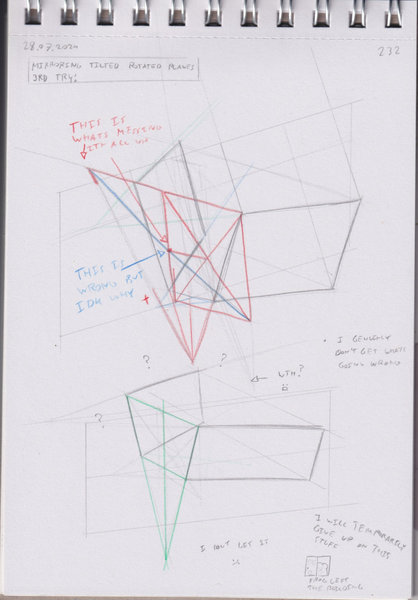 28.07.2024
232
MIRRORING TILTED ROTATED PLANES
3RD TRY:
THIS IS
WHATS MESSING
IT ALL UP
THIS IS
WRONG BUT
IDK WHY
?
?
WTH?
I GENUINELY
DON'T GET WHATS
GOING WRONG
?
I DON'T GET IT
I WILL TEMPORARILY
GIVE UP ON THIS
STUFF
FROG LEFT
THE BUILDING